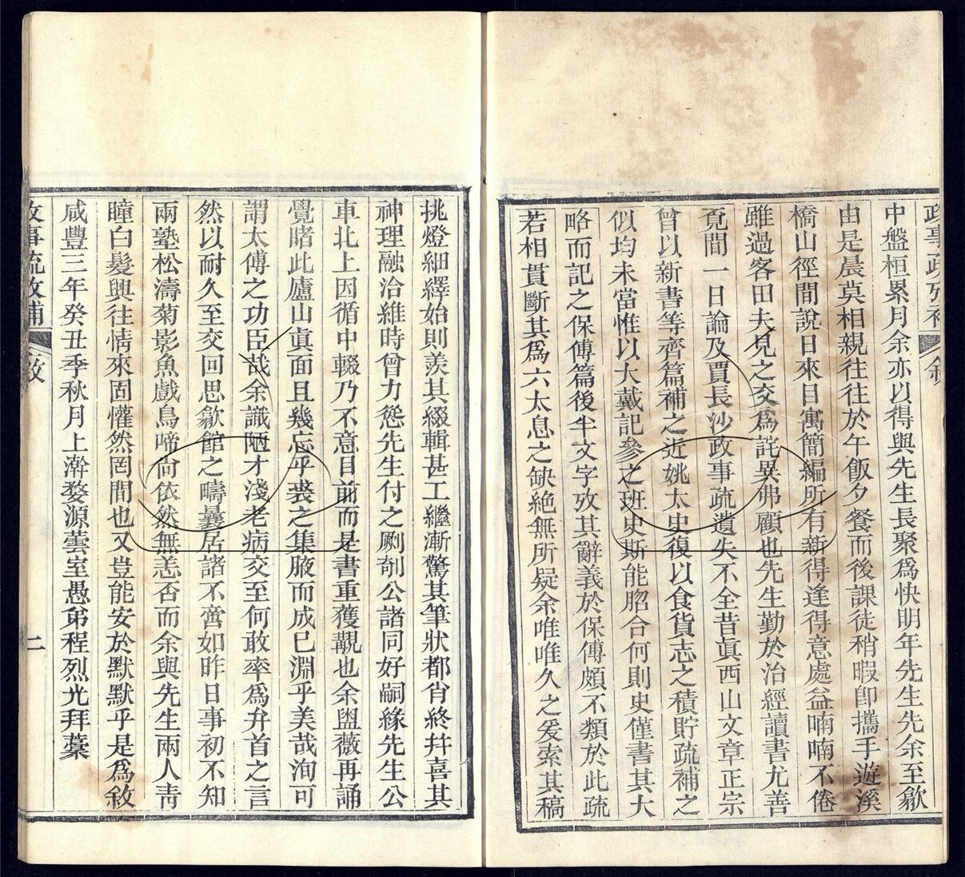 政事疏攷補 敘
中盤桓累月余亦以得與先生長聚爲快明年先生先余至歙
由是晨莫相親往往於午飯夕餐而後課徒稍暇卽攜手遊溪
橋山徑間說日來目寓簡編所有新得逢得意處益喃喃不倦
雖過客田夫見之交爲詫異弗顧也先生勤於治經讀書尤善
覓間一日論及賈長沙政事疏遺失不全昔眞西山文章正宗
曾以新書等齊篇補之近姚太史復以食貨志之積貯疏補之
似均未當惟以大戴記參之班史斯能脗合何則史僅書其大
略而記之保傅篇後半文字攷其辭義於保傅頗不類於此疏
若相貫斷其爲六太息之缺絕無所疑余唯唯久之爰索其稿
挑燈細繹始則羨其綴輯甚工繼漸驚其筆狀都肖終幷喜其
神理融洽維時曾力慫先生付之劂剞公諸同好嗣緣先生公
車北上因循中輟乃不意目前而是書重獲覯也余盥薇再誦
覺睹此廬山眞面且幾忘乎裘之集腋而成已淵乎美哉洵可
謂太傅之功臣哉余識陋才淺老病交至何敢率爲弁首之言
然以耐久至交回思歙館之疇曩居諸不啻如昨日事初不知
兩塾松濤菊影魚戲鳥啼尙依然無恙否而余與先生兩人靑
瞳白髮興往情來固懽然罔間也又豈能安於默默乎是爲敘
咸豐三年癸丑季秋月上澣婺源藝室愚弟程烈光拜藁
政事疏攷補 敘 二